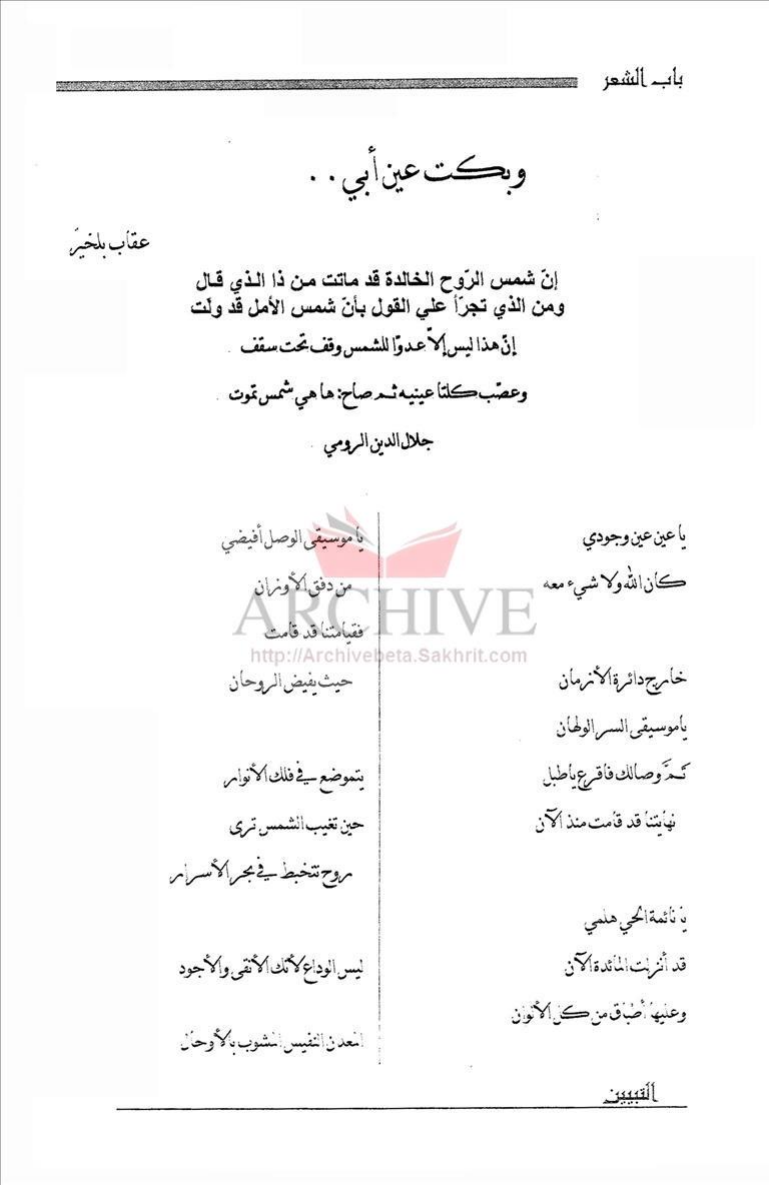 باب الشعر
وبكت عين أبي . .
عقاب بلخير
إنّ شمس الرّوح الخالدة قد ماتت من ذا الذي قال
ومن الذي تجرّأ علي القول بأنّ شمس الأمل قد ولّت
إنّ هذا ليس إلاّ عدوّا للشمس وقف تحت سقف .
وعصّب كلتا عينيه ثم صاح: ها هي شمس تموت .
جلال الدين الرومي .
يا عين عين وجودي
كان الله ولا شيء معه
خارج دائرة الأزمان
يا موسيقى السر الولهان
تمّ وصالك فاقرع يا طبل
نهايتنا قد قامت منذ الآن
يا نائمة الحي هلمي
قد أنزلت المائدة الآن
وعليها أطباق من كل الألوان
يا موسيقى الوصل أفيضي
من دفق الأوزان
فقيامتنا قد قامت
حيث يفيض الروحان
يتموضع في فلك الأنوار
حين تغيب الشمس ترى
روح تتخبط في بحر الأسرار
ليس الوداع لأنك الأنقى والأجود
المعدن النفيس المشوب بالأوحال
ARCHIVE
http://Archivebeta.Sakhrit.com
التبيين